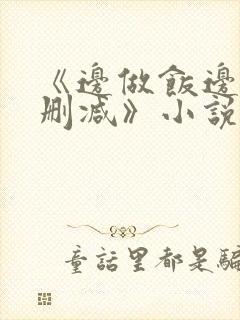 《邊做飯邊
刪減》小說
童話里都是騙